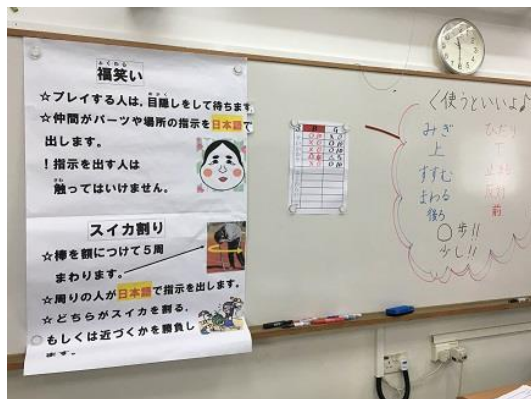 ふくわら
福笑い
めかく
☆プレイする人は、目隠しをして待ちます
☆仲間がパーツや場所の指示を日本語で
出します。
！指示を出す人は
さわ
触ってはいけません。
スイカ割り
☆棒を額につけて５周
まわります。
☆周りの人が日本語で指示を出します。
☆どちらがスイカを割る、
もしくは近づくかを勝負し
ます。
く使うといいよ♪
みぎ ひだり
上 下
すすむ 止まる
まわる 反対
後ろ 前
○歩!!
少し!!